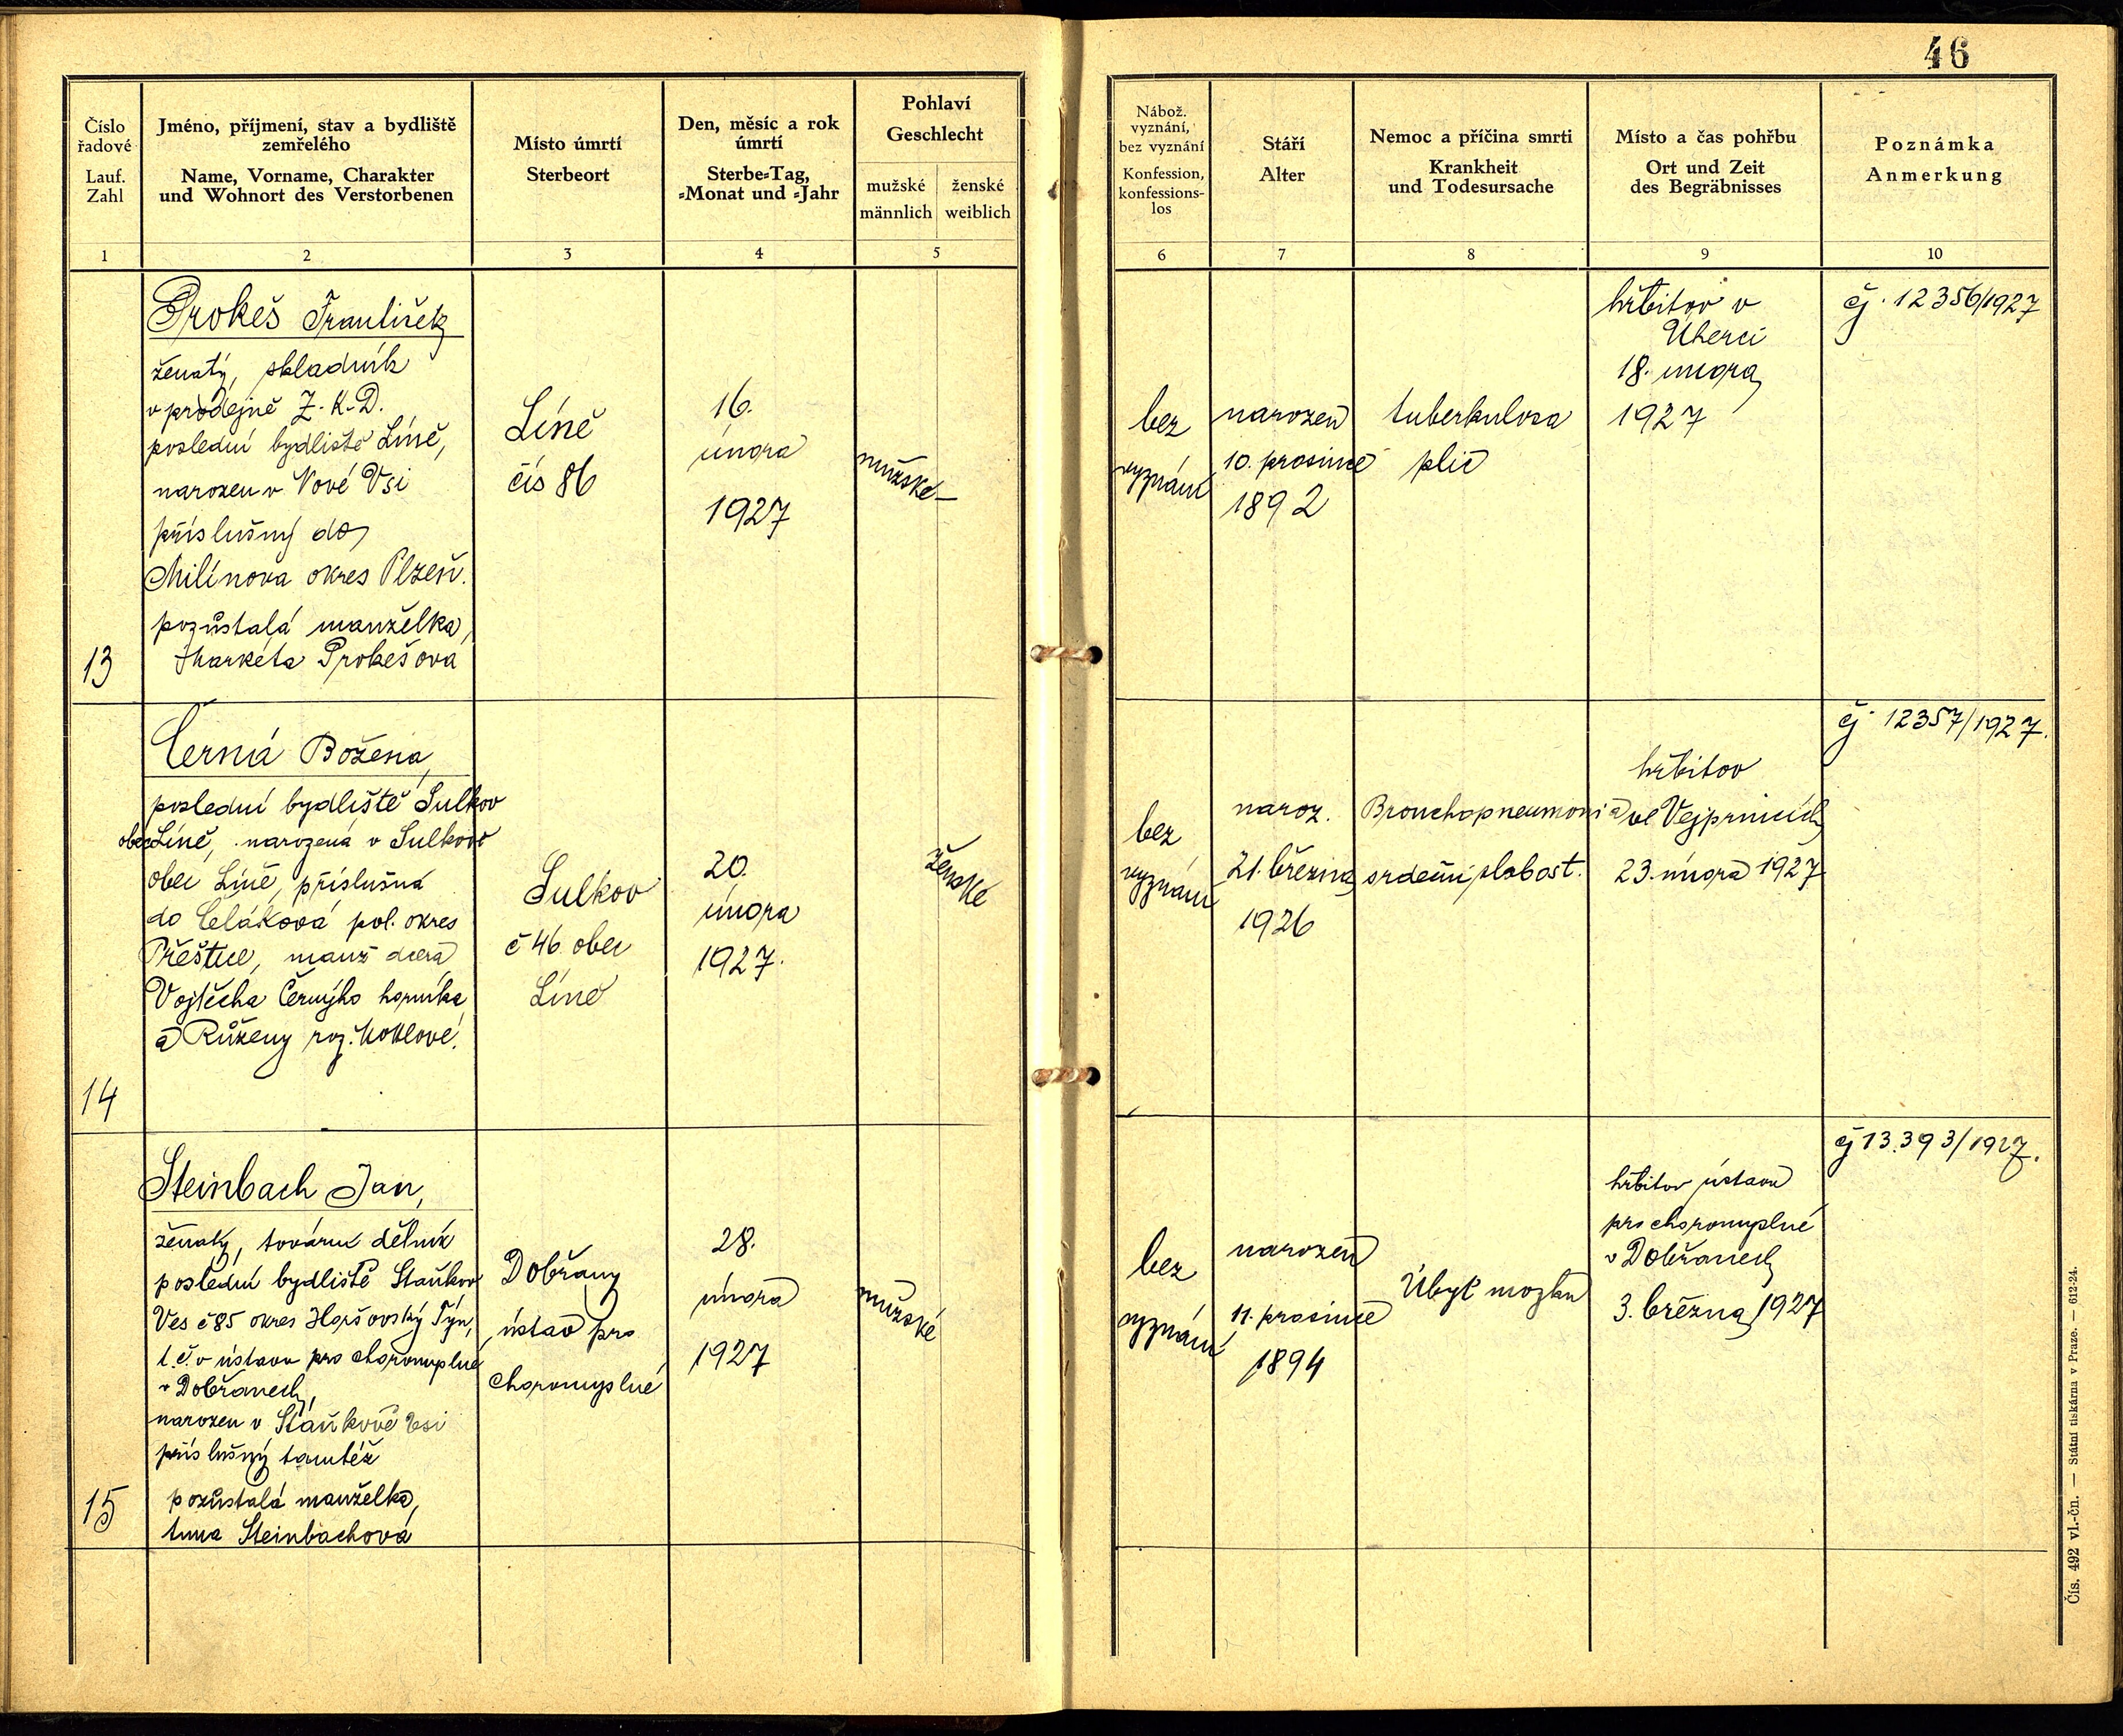 46
Číslo
řadové
Lauf.
Zahl
Jméno, příjmení, stav a bydliště
zemřelého
Name, Vorname, Charakter
und Wohnort des Verstorbenen
Místo úmrtí
Sterbeort
Den, měsíc a rok
úmrtí
Sterbe=Tag,
=Monat und =Jahr
Pohlaví
Geschlecht
mužské
männlich
ženské
weiblich
Nábož.
vyznání,
bez vyznání
Konfession,
konfessions-
los
Stáří
Alter
Nemoc a příčina smrti
Krankheit
und Todesursache
Místo a čas pohřbu
Ort und Zeit
des Begräbnisses
Poznámka
Anmerkung
1
2
3
4
5
6
7
8
9
10
13
Prokeš František
ženatý, skladník
v prodejně Z. K. D.
poslední bydliště Líně,
narozen v Nové Vsi
příslušný do
Milínova okres Plzeň.
pozůstalá manželka,
Markéta Prokešová
Líně
čís 86
16.
února
1927
mužské
bez
vyznání
narozen
10. prosince
1892
tuberkulosa
plic
hřbitov v
Úherci
18. února
1927
čj. 12356/1927
14
Černá Božena,
poslední bydliště Sulkov
obec Líně, narozená v Sulkově
obec Líně, příslušná
do Čelákova pol. okres
Přeštice, manž dcera
Vojtěcha Černýho horníka
a Růženy roz. Koklové.
Sulkov
č 46. obec
Líně
20.
února
1927.
ženské
bez
vyznání
naroz.
21. března
1926
Bronchopneumonia
srdeční slabost.
hřbitov
ve Vejprnicích
23. února 1927
čj. 12357/1927.
15
Steinbach Jan,
ženatý, tovární dělník
poslední bydliště Staňkov
Ves č 85 okres Horšovský Týn,
t. č. v ústavu pro choromyslné
v Dobřanech,
narozen v Staňkově Vsi
příslušný tamtéž
pozůstalá manželka,
Anna Steinbachová
Dobřany
ústav pro
choromyslné
28.
února
1927
mužské
bez
vyznání
narozen
11. prosince
1894
Úbyt mozku
hřbitov ústavu
pro choromyslné
v Dobřanech
3. března 1927
čj 13.393/1927.
Čís. 492 vl.-čn. — Státní tiskárna v Praze. — 612-24.